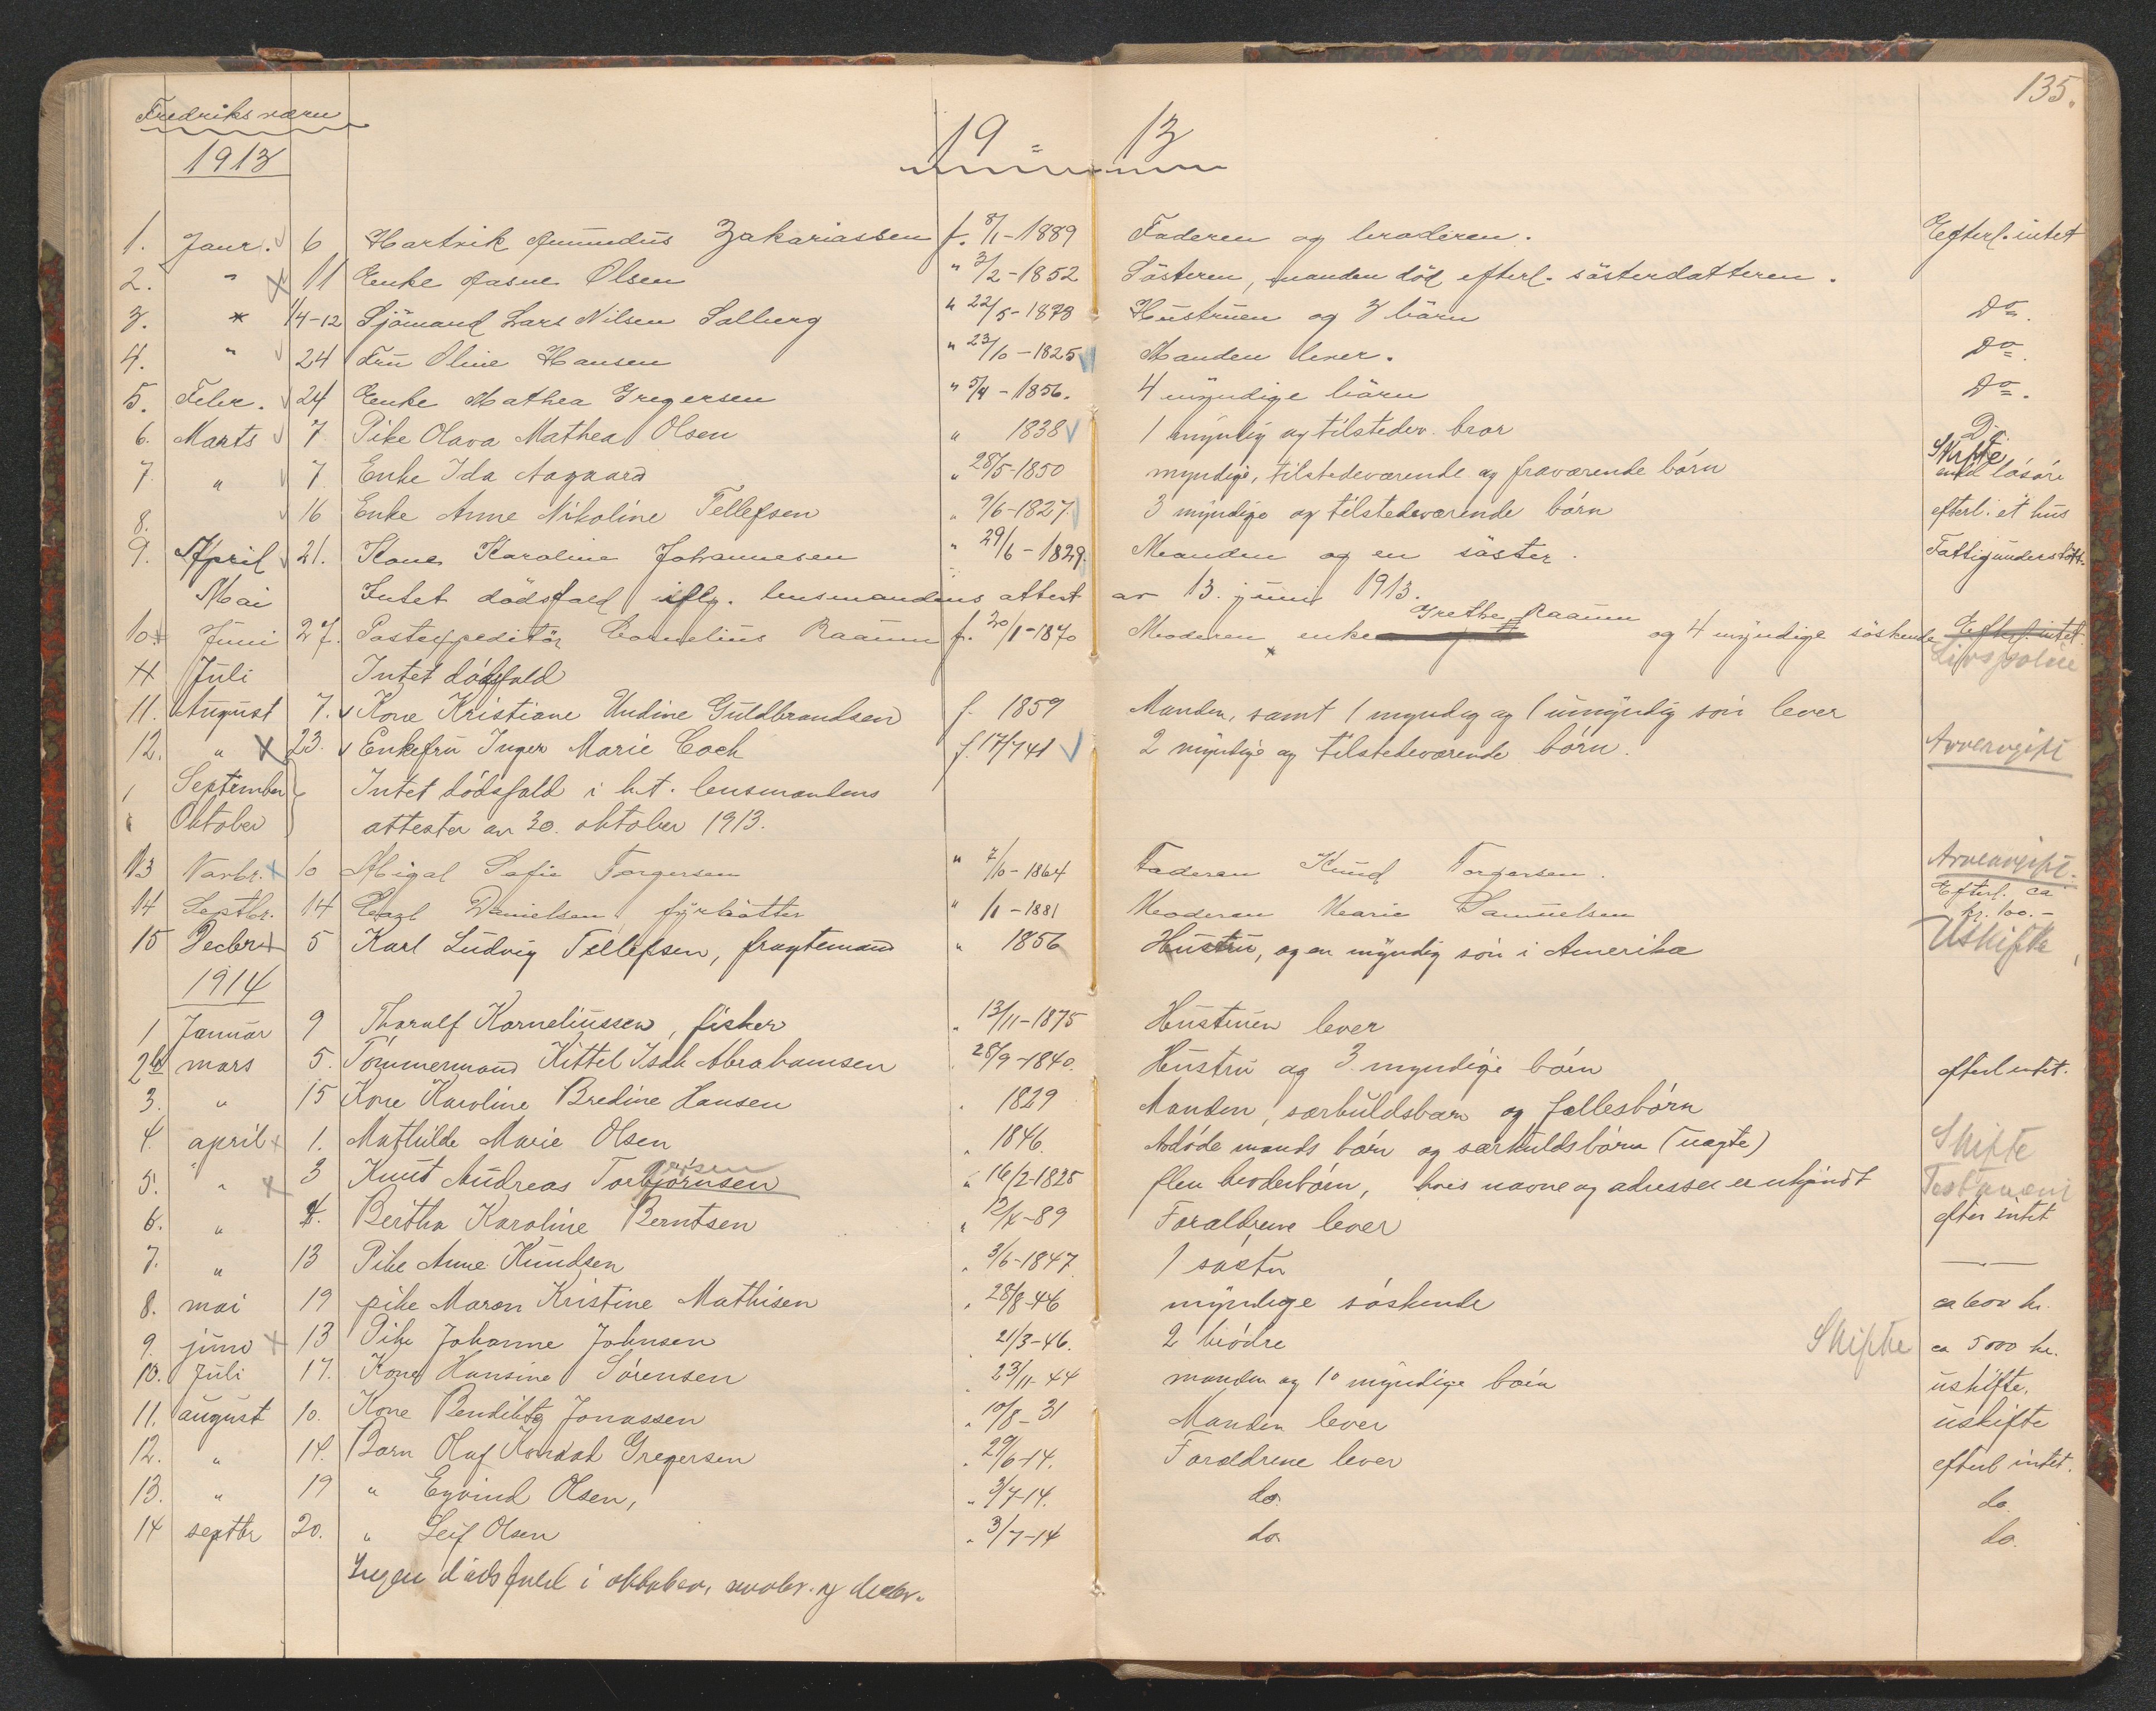 135.
Fredriksværn
1913
19 - 13
1. Janr. 6 Hartvik Amundus Zakariassen f. 8/1-1889 Faderen og broderen. Efterl. intet
2. " 11 Enke Aasne Olsen " 3/2-1852 Søsteren, manden död efterl. sösterdatteren.
3. " 14-12 Sjömand Lars Nilsen Solberg " 22/5-1878 Hustruen og 3 börn Do.
4. " 24 Fru Oline Hansen " 23/10-1825 Manden lever. Do.
5. Febr. 24 Enke Mathea Gregersen " 5/4-1856. 4 myndige börn Do.
6. Marts 7 Pike Olava Mathea Olsen " 1838 1 myndig og tilstedev. bror D.
7. " 7 Enke Ida Aagaard " 28/5-1850 myndige, tilstedeværende og fraværende börn Skifte endel lösöre
8. 16 Enke Anne Nikoline Tellefsen " 9/6-1827 3 myndige og tilstedeværende börn efterl. et hus
9. April 21. Kone Karoline Johannesen " 29/6-1829. Manden og en söster. Fattigunderstött.
Mai Intet dödsfald iflg. lensmandens attest av 13. juni 1913.
10 Juni 27. Postexpeditör Cornelius Raaum f. 20/1-1870 Moderen enke Grethe Raaum og 4 myndige söskende Efterl. intet Livspolice
Juli Intet dödsfald
11. August 7. Kone Kristiane Undine Guldbrandsen f. 1859 Manden, samt 1 myndig og 1 umyndig sön lever
12. " 23. Enkefru Inger Marie Coch f. 17/7 41 2 myndige og tilstedeværende börn. Arveavgift
September Intet dödsfald i h.t. lensmandens
Oktober attester av 30. oktober 1913.
13 Novbr. 10 Abigal Sofie Torgersen " 7/10-1864 Faderen Knud Torgersen. Arveavgift.
14 Septbr. 14 Carl Danielsen fyrböter " 1/1-1881 Moderen Marie Samuelsen Efterl. ca kr. 100.-
15 Decbr. 5 Karl Ludvig Tellefsen, fragtemand " 1856 Hustru, og en myndig sön i Amerika Uskifte
1914
1 Januar 9 Tharalf Korneliussen, fisker " 13/11-1875 Hustruen lever
2 mars 5. Tömmermand Kittel Isak Abrahamsen " 28/9-1840. Hustru og 3 myndige börn efterl intet.
3. " 15 Kone Karoline Bredine Hansen " 1829 Manden, særkuldsbarn og fællesbörn
4. april 1. Mathilde Marie Olsen " 1846. Avdöde mands börn og særkuldsbörn (uægte) Skifte
5. " 3 Knut Andreas Torbjörnsen " 16/2-1825 flere broderbörn, hvis navne og adresser er ukjendt Testament
6. " 4. Bertha Karoline Berntsen " 12/4-89 Forældrene lever efterl intet
7. " 13 Pike Anne Knudsen " 3/6-1847 1 söster —"—
8. mai 19 pike Maren Kristine Mathisen " 28/8-46 myndige söskende ca 600 kr.
9. juni 13 Pike Johanne Johnsen " 21/3-46. 2 brödre Skifte ca 5000 kr.
10. Juli 17. Kone Hansine Sörensen " 23/11-44 manden og 10 myndige börn uskifte.
11. august 10. Kone Bendikte Jonassen " 10/8-31 Manden lever uskifte
12. " 14. Barn Olaf Konrad Gregersen " 29/6-14. Forældrene lever efterl intet.
13. " 19 " Eyvind Olsen, " 3/7-14. do. do.
14 septbr 20. " Leif Olsen " 3/7-14 do. do.
Ingen dödsfald i oktober, novbr. og decbr.